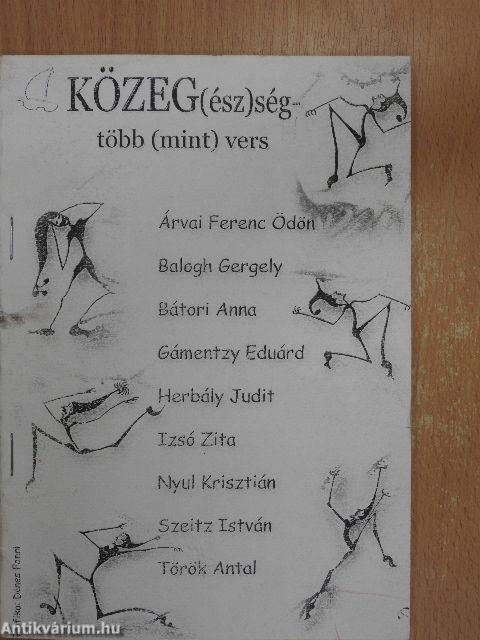 KÖZEG(ész)ség-
több (mint) vers
Árvai Ferenc Ödön
Balogh Gergely
Bátori Anna
Gámentzy Eduárd
Herbály Judit
Izsó Zita
Nyul Krisztián
Szeitz István
Török Antal
Denes Fanni
Antikvárium.hu